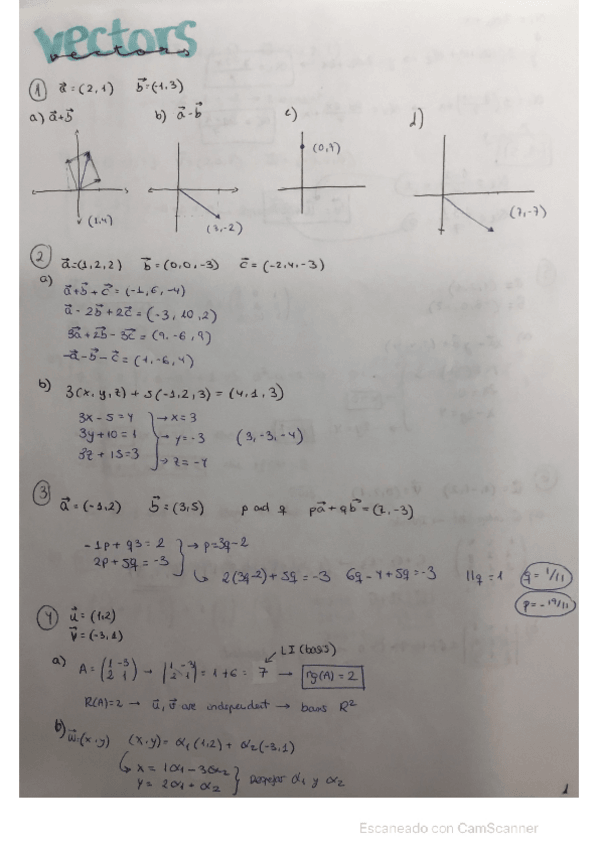 vectors
vectors
① a⃗ = (2,1)   b⃗ = (-1,3)
a) a⃗+b⃗   b) a⃗-b⃗   c)   d)
(0,7)
(1,4)   (3,-2)   (7,-7)
② a⃗=(1,2,2)   b⃗=(0,0,-3)   c⃗=(-2,4,-3)
a)
a⃗+b⃗+c⃗=(-1,6,-4)
a⃗-2b⃗+2c⃗=(-3,10,2)
3a⃗+2b⃗-3c⃗=(9,-6,9)
-a⃗-b⃗-c⃗=(1,-6,4)
b) 3(x,y,z)+5(-1,2,3)=(4,1,3)
3x-5=4 → x=3
3y+10=1 → y=-3   (3,-3,-4)
3z+15=3 → z=-4
③ a⃗=(-1,2)   b⃗=(3,5)   p and q   pa⃗+qb⃗=(2,-3)
-1p+q3=2 → p=3q-2
2p+5q=-3
↳ 2(3q-2)+5q=-3   6q-4+5q=-3   11q=1   q=1/11
p=-19/11
④ u⃗=(1,2)
v⃗=(-3,1)
LI (basis)
a) A=(1 -3 2 1) → |1 -3 2 1|=1+6=7 → rg(A)=2
R(A)=2 → u⃗, v⃗ are independent → basis R²
b) w⃗=(x,y)   (x,y)=α₁(1,2)+α₂(-3,1)
↳ x=1α₁-3α₂
y=2α₁+α₂   Despejar α₁ y α₂
1
Escaneado con CamScanner